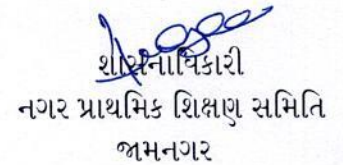 શાસનાધિકારી
નગર પ્રાથમિક શિક્ષણ સમિતિ
જામનગર